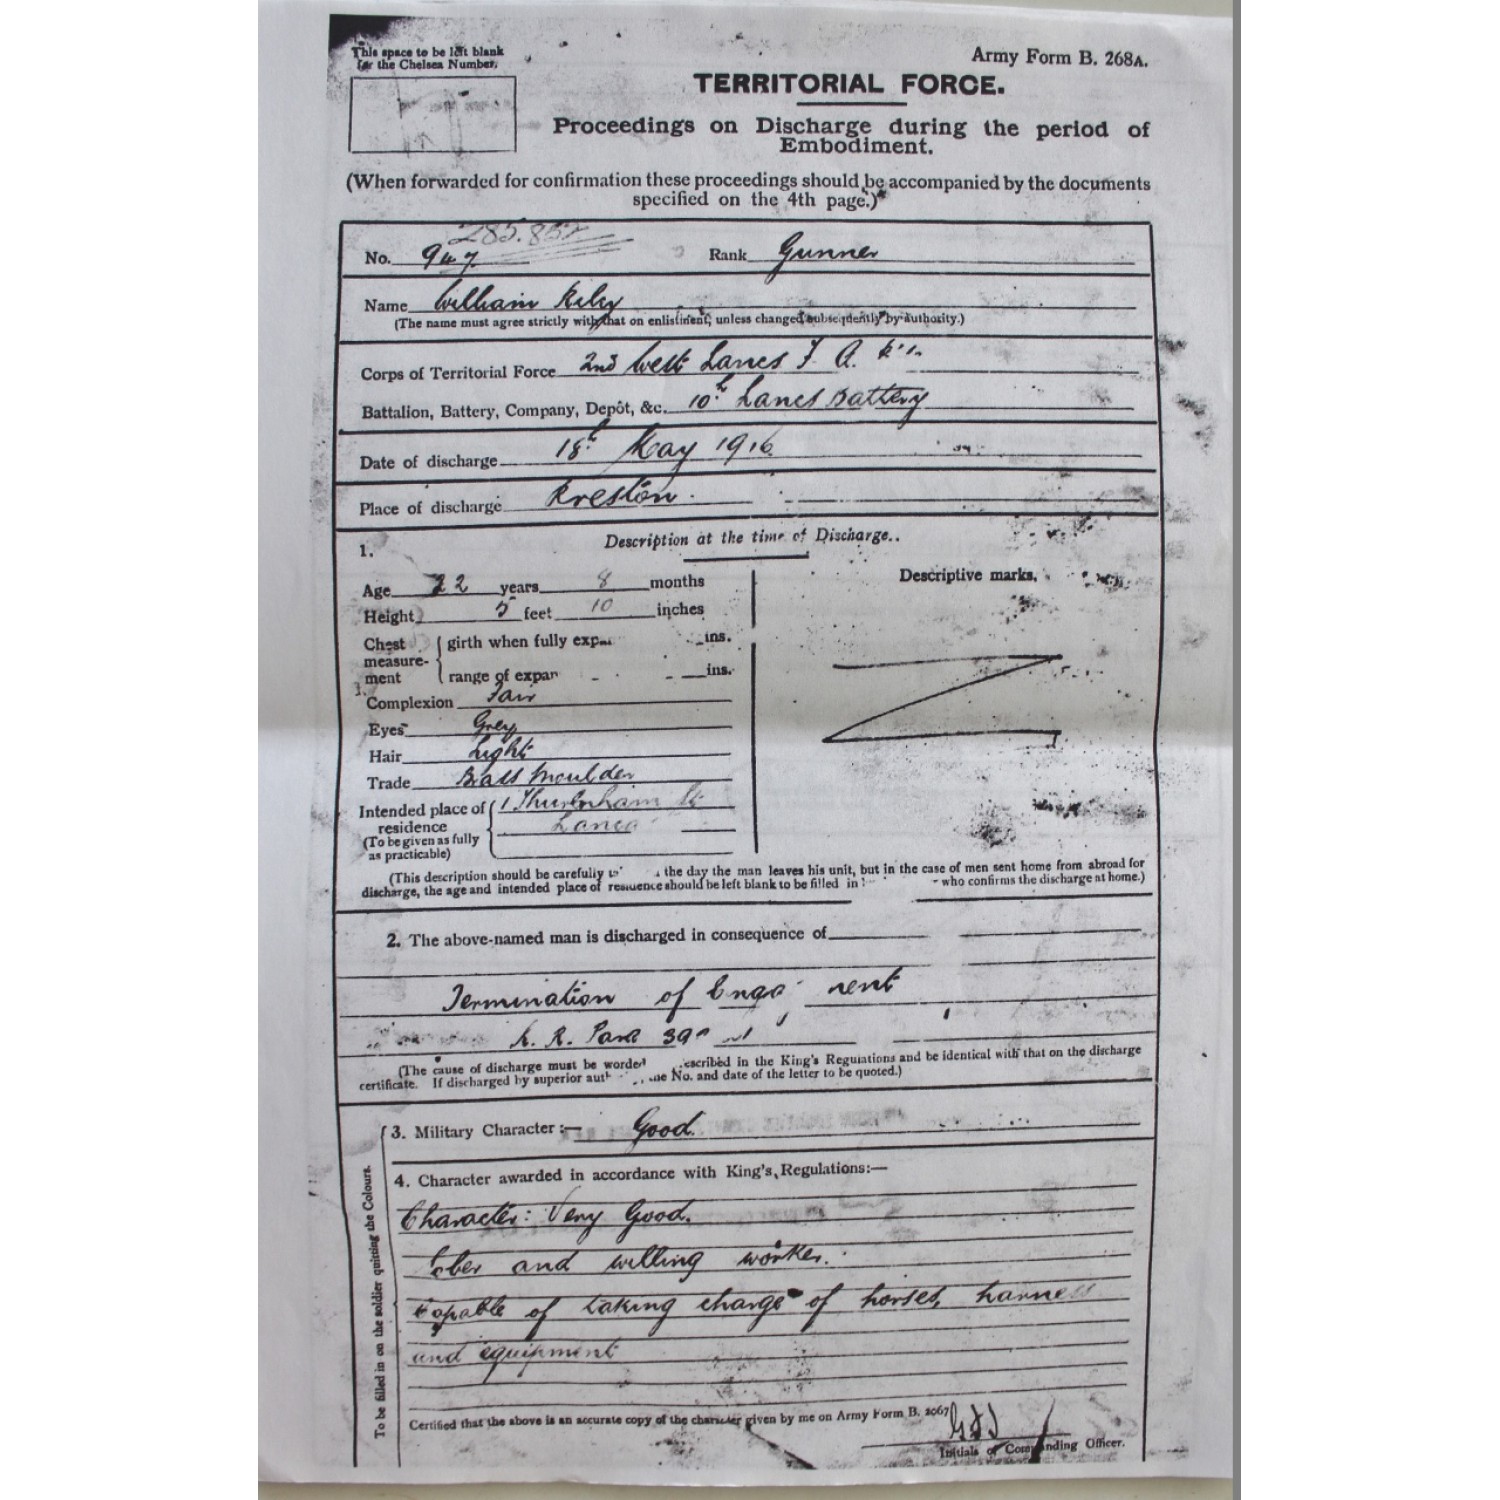 This space to be left blank
for the Chelsea Number.
Army Form B. 268A.
TERRITORIAL FORCE.
Proceedings on Discharge during the period of
Embodiment.
(When forwarded for confirmation these proceedings should be accompanied by the documents
specified on the 4th page.)
No. 947 Rank Gunner
Name William
(The name must agree strictly with that on enlistment, unless changed subsequently by authority.)
Corps of Territorial Force 2nd West Lancs F. A.
Battalion, Battery, Company, Depôt, &c. 10th Lancs Battery
Date of discharge 18th May 1916
Place of discharge Preston.
1. Description at the time of Discharge.
Age 22 years 8 months
Descriptive marks.
Height 5 feet 10 inches
Chest measurement girth when fully ins.
range of ins.
Complexion Fair
Eyes Grey
Hair Light
Trade Brass Moulder
Intended place of residence 1 St
(To be given as fully
as practicable)
(This description should be carefully the day the man leaves his unit, but in the case of men sent home from abroad for
discharge, the age and intended place of residence should be left blank to be filled in who confirms the discharge at home.)
2. The above-named man is discharged in consequence of
Termination of
K. R. Para
(The cause of discharge must be worded in the King's Regulations and be identical with that on the discharge
certificate. If discharged by superior No. and date of the letter to be quoted.)
To be filled in on the soldier quitting the Colours.
3. Military Character:— Good.
4. Character awarded in accordance with King's Regulations:—
Character: Very Good.
Sober and willing worker.
Capable of taking charge of horses, harness
and equipment
Certified that the above is an accurate copy of the character given by me on Army Form B. 2067
Initials of Commanding Officer.